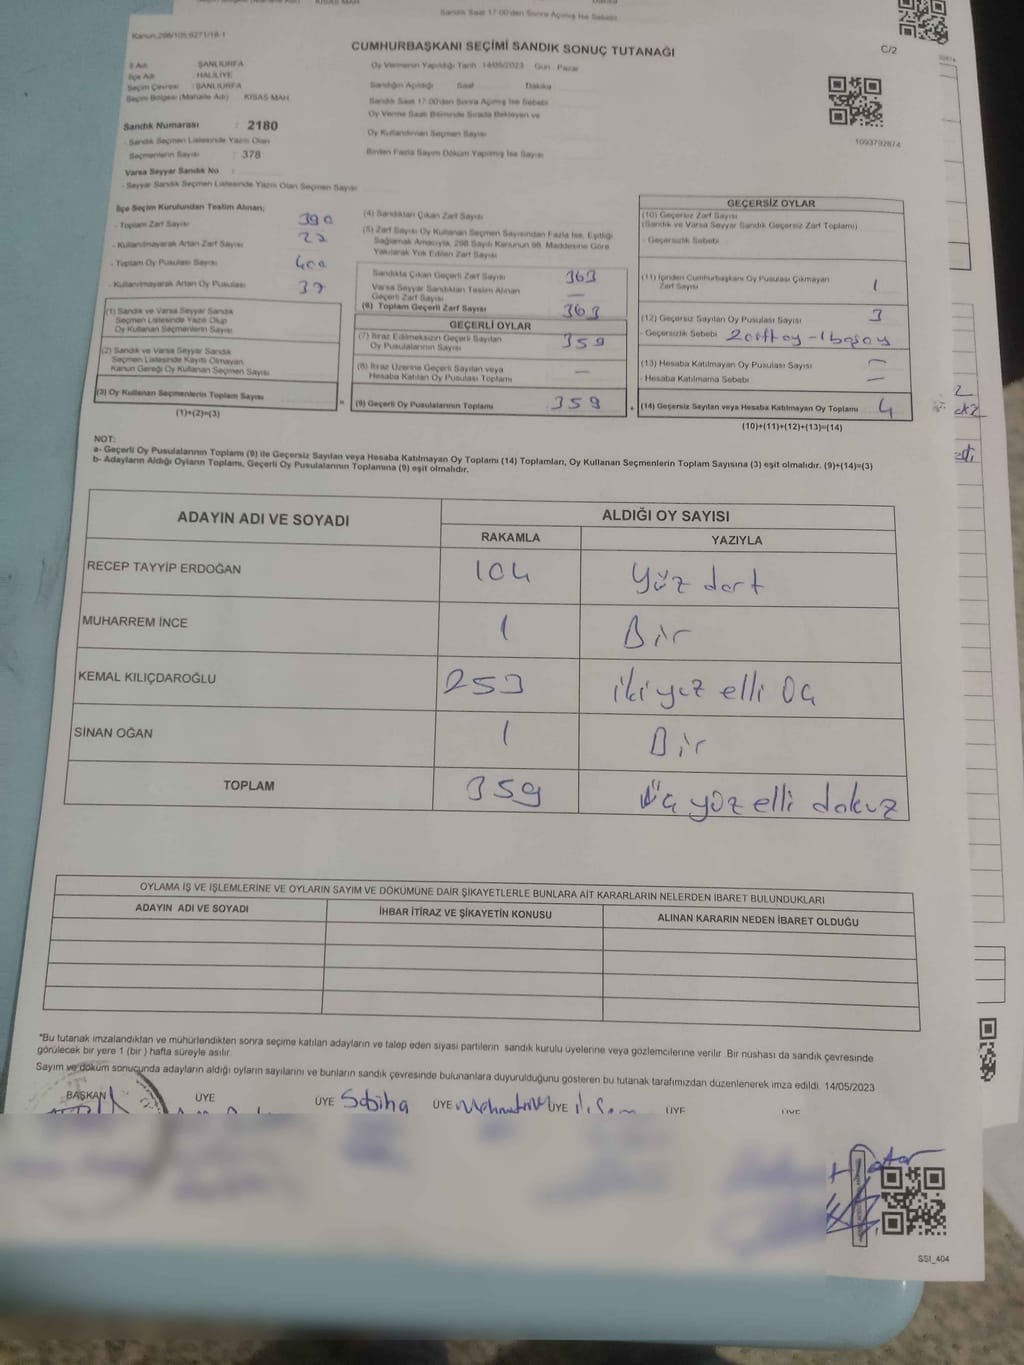 Sandık Saat 17:00'den Sonra Açılmış İse Sebebi
Kanun:298/105;6271/18-1
CUMHURBAŞKANI SEÇİMİ SANDIK SONUÇ TUTANAĞI
C/2
İl Adı : ŞANLIURFA
İlçe Adı : HALİLİYE
Seçim Çevresi : ŞANLIURFA
Seçim Bölgesi (Mahalle Adı) : KISAS MAH
Sandık Numarası : 2180
- Sandık Seçmen Listesinde Yazılı Olan
Seçmenlerin Sayısı : 378
Varsa Seyyar Sandık No :
- Seyyar Sandık Seçmen Listesinde Yazılı Olan Seçmen Sayısı
Oy Vermenin Yapıldığı Tarih :14/05/2023 Gün : Pazar
Sandığın Açıldığı Saat Dakika
Sandık Saat 17:00'den Sonra Açılmış İse Sebebi
Oy Verme Saati Bitiminde Sırada Bekleyen ve
Oy Kullandırılan Seçmen Sayısı
Birden Fazla Sayım Döküm Yapılmış İse Sayısı
1093792874
İlçe Seçim Kurulundan Teslim Alınan;
- Toplam Zarf Sayısı 390
- Kullanılmayarak Artan Zarf Sayısı 27
- Toplam Oy Pusulası Sayısı 400
- Kullanılmayarak Artan Oy Pusulası 37
(1) Sandık ve Varsa Seyyar Sandık
Seçmen Listesinde Yazılı Olup
Oy Kullanan Seçmenlerin Sayısı
(2) Sandık ve Varsa Seyyar Sandık
Seçmen Listesinde Kayıtlı Olmayan
Kanun Gereği Oy Kullanan Seçmen Sayısı
(3) Oy Kullanan Seçmenlerin Toplam Sayısı
(1)+(2)=(3)
(4) Sandıktan Çıkan Zarf Sayısı
(5) Zarf Sayısı Oy Kullanan Seçmen Sayısından Fazla İse, Eşitliği
Sağlamak Amacıyla, 298 Sayılı Kanunun 98. Maddesine Göre
Yakılarak Yok Edilen Zarf Sayısı
Sandıkta Çıkan Geçerli Zarf Sayısı 363
Varsa Seyyar Sandıktan Teslim Alınan
Geçerli Zarf Sayısı —
(6) Toplam Geçerli Zarf Sayısı 363
GEÇERLİ OYLAR
(7) İtiraz Edilmeksizin Geçerli Sayılan
Oy Pusulalarının Sayısı 359
(8) İtiraz Üzerine Geçerli Sayılan veya
Hesaba Katılan Oy Pusulası Toplamı —
(9) Geçerli Oy Pusulalarının Toplamı 359
GEÇERSİZ OYLAR
(10) Geçersiz Zarf Sayısı
(Sandık ve Varsa Seyyar Sandık Geçersiz Zarf Toplamı)
- Geçersizlik Sebebi
(11) İçinden Cumhurbaşkanı Oy Pusulası Çıkmayan
Zarf Sayısı 1
(12) Geçersiz Sayılan Oy Pusulası Sayısı 3
- Geçersizlik Sebebi 2 çift oy - 1 boş oy
(13) Hesaba Katılmayan Oy Pusulası Sayısı —
- Hesaba Katılmama Sebebi —
(14) Geçersiz Sayılan veya Hesaba Katılmayan Oy Toplamı 4
(10)+(11)+(12)+(13)=(14)
NOT:
a- Geçerli Oy Pusulalarının Toplamı (9) ile Geçersiz Sayılan veya Hesaba Katılmayan Oy Toplamı (14) Toplamları, Oy Kullanan Seçmenlerin Toplam Sayısına (3) eşit olmalıdır. (9)+(14)=(3)
b- Adayların Aldığı Oyların Toplamı, Geçerli Oy Pusulalarının Toplamına (9) eşit olmalıdır.
ADAYIN ADI VE SOYADI
ALDIĞI OY SAYISI
RAKAMLA YAZIYLA
RECEP TAYYİP ERDOĞAN 104 Yüz dört
MUHARREM İNCE 1 Bir
KEMAL KILIÇDAROĞLU 253 iki yüz elli üç
SİNAN OĞAN 1 Bir
TOPLAM 359 üç yüz elli dokuz
OYLAMA İŞ VE İŞLEMLERİNE VE OYLARIN SAYIM VE DÖKÜMÜNE DAİR ŞİKAYETLERLE BUNLARA AİT KARARLARIN NELERDEN İBARET BULUNDUKLARI
ADAYIN ADI VE SOYADI İHBAR İTİRAZ VE ŞİKAYETİN KONUSU ALINAN KARARIN NEDEN İBARET OLDUĞU
*Bu tutanak imzalandıktan ve mühürlendikten sonra seçime katılan adayların ve talep eden siyasi partilerin sandık kurulu üyelerine veya gözlemcilerine verilir. Bir nushası da sandık çevresinde
görülecek bir yere 1 (bir ) hafta süreyle asılır.
Sayım ve döküm sonucunda adayların aldığı oyların sayılarını ve bunların sandık çevresinde bulunanlara duyurulduğunu gösteren bu tutanak tarafımızdan düzenlenerek imza edildi. 14/05/2023
BAŞKAN ÜYE ÜYE Sabiha ÜYE ÜYE ÜYE ÜYE
SSI_404